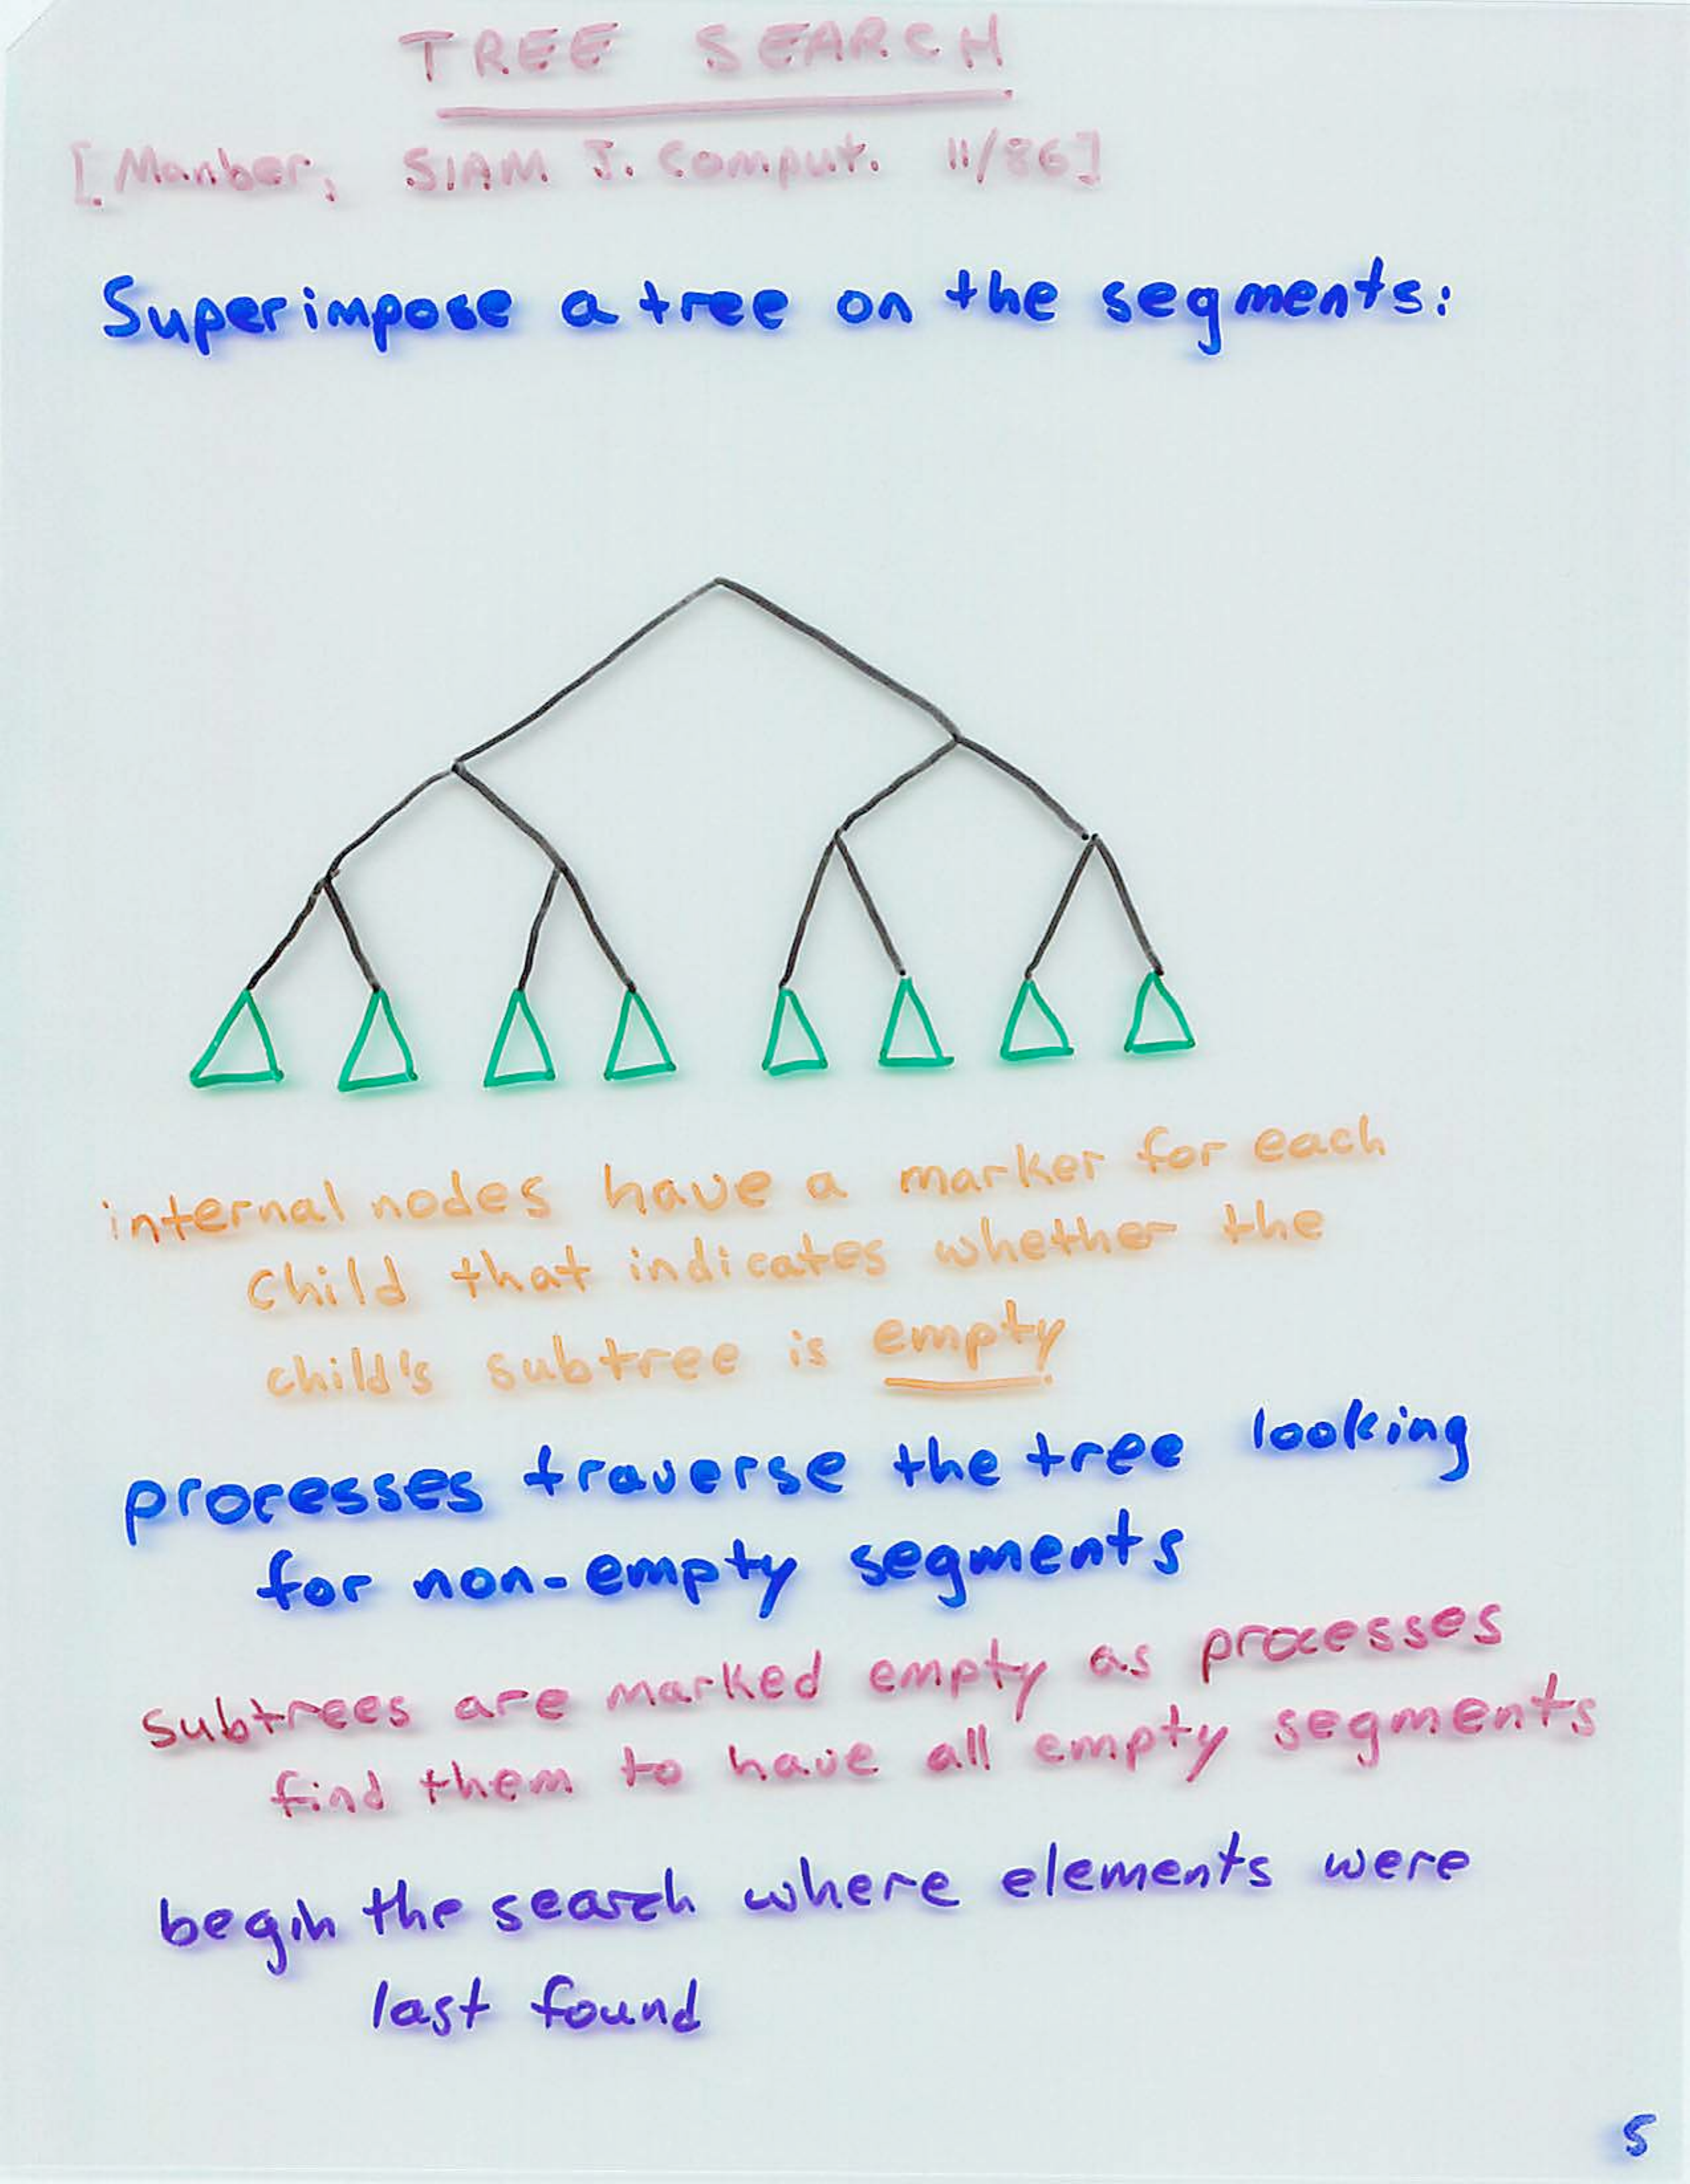 TREE SEARCH
[Manber, SIAM J. Comput. 11/86]
Superimpose a tree on the segments:
internal nodes have a marker for each
child that indicates whether the
child's subtree is empty
processes traverse the tree looking
for non-empty segments
subtrees are marked empty as processes
find them to have all empty segments
begin the search where elements were
last found
5